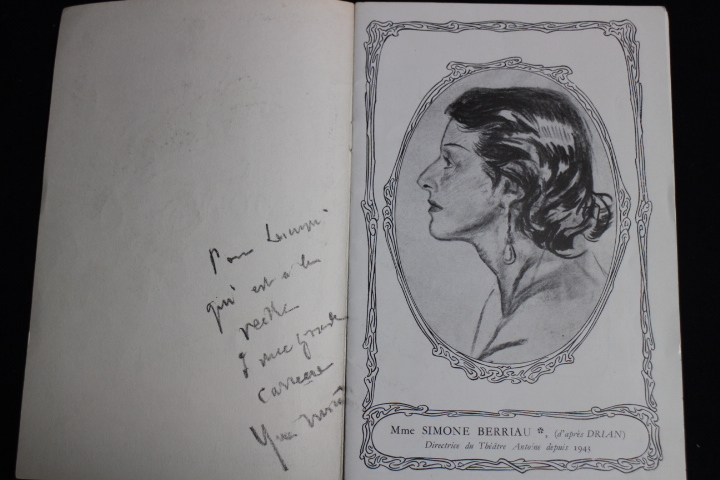 Pour
qui est à la
veille
d'une grande
carrière
Mme SIMONE BERRIAU *, (d'après DRIAN)
Directrice du Théâtre Antoine depuis 1943